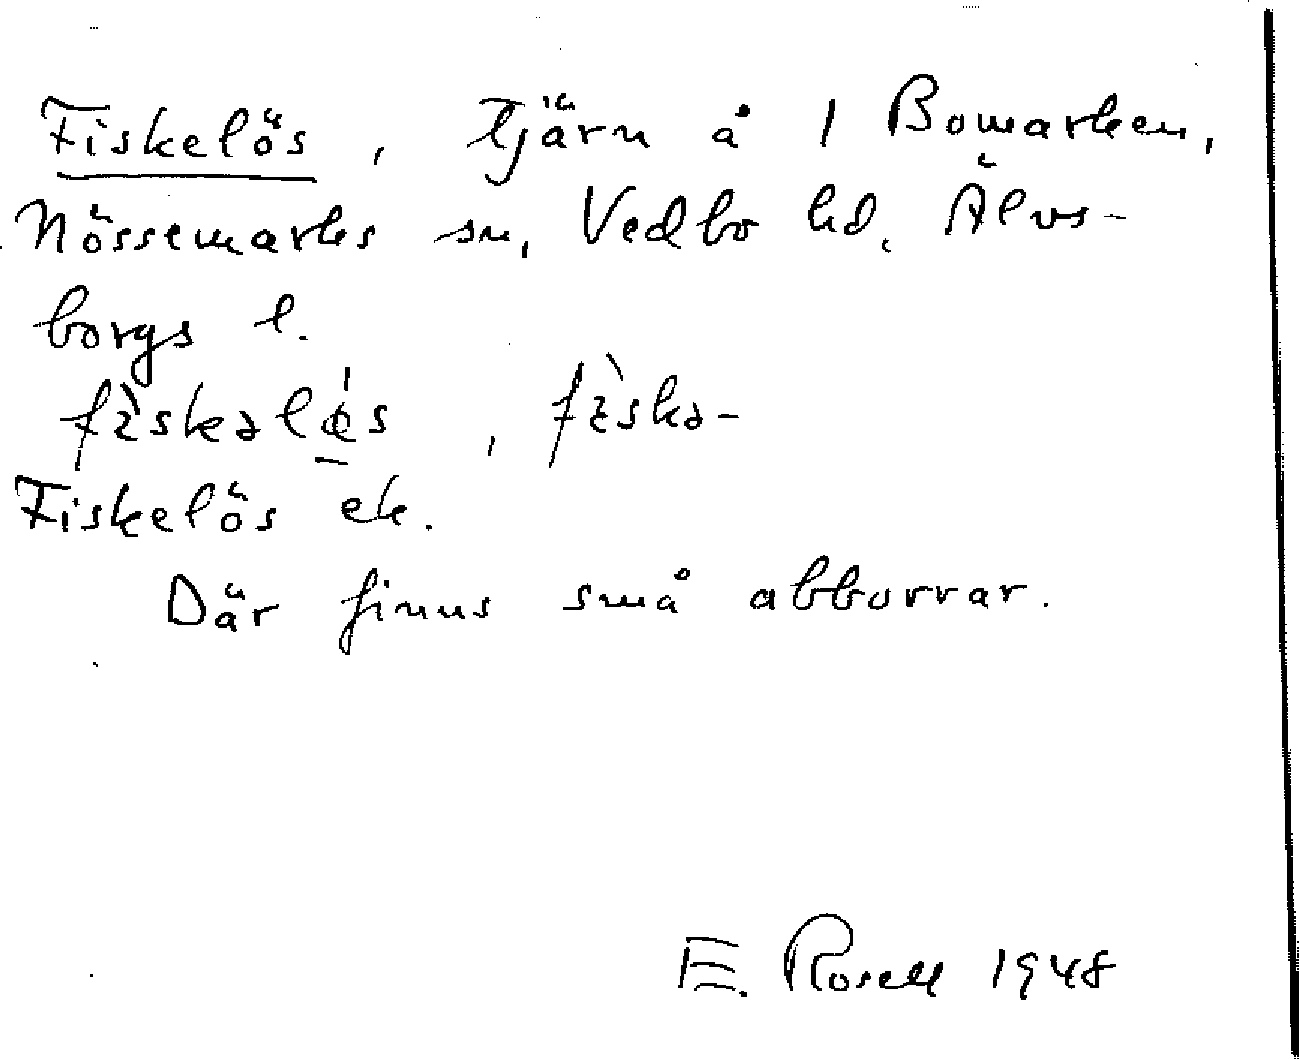 Fiskelös, tjärn å 1 Bomarken,
Nössemarks sn, Vedbo hd, Älvs-
borgs l.
fiskə-
Fiskelös ek.
Där finns små abborrar.
E. Rosell 1948